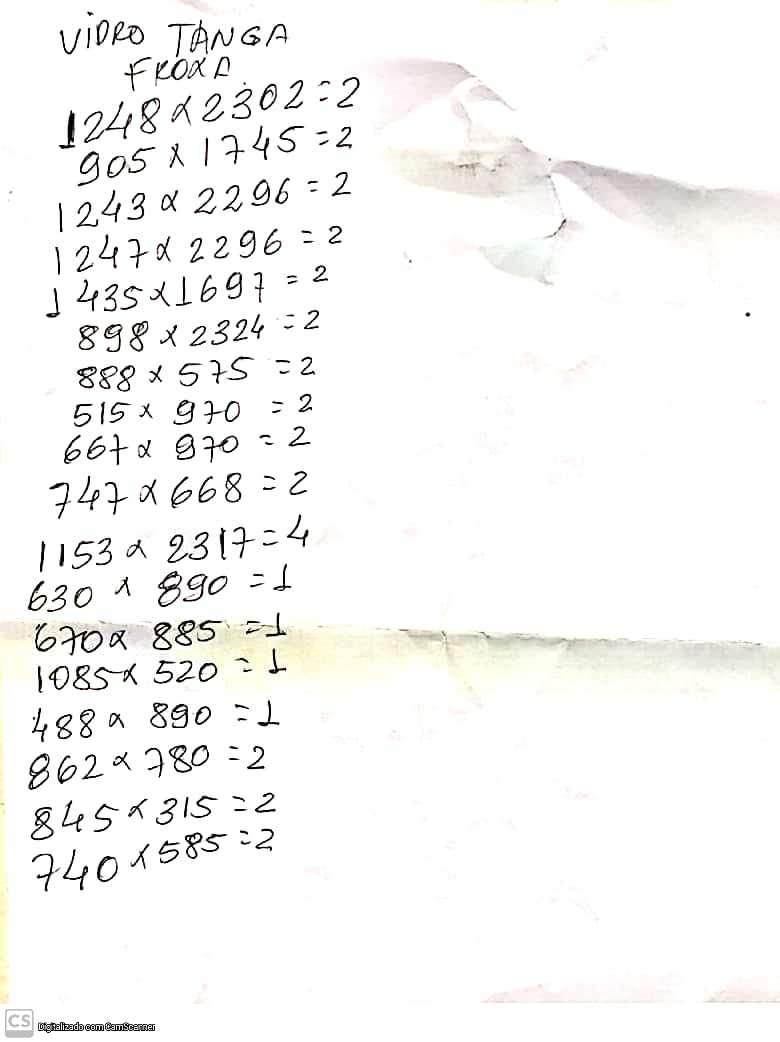 VIDRO TANGA
FROXA
1248 x 2302 = 2
905 x 1745 = 2
1243 x 2296 = 2
1247 x 2296 = 2
1435 x 1697 = 2
898 x 2324 = 2
888 x 575 = 2
515 x 970 = 2
667 x 970 = 2
747 x 668 = 2
1153 x 2317 = 4
630 x 890 = 1
670 x 885 = 1
1085 x 520 = 1
488 x 890 = 1
862 x 780 = 2
845 x 315 = 2
740 x 585 = 2
CS Digitalizado com CamScanner